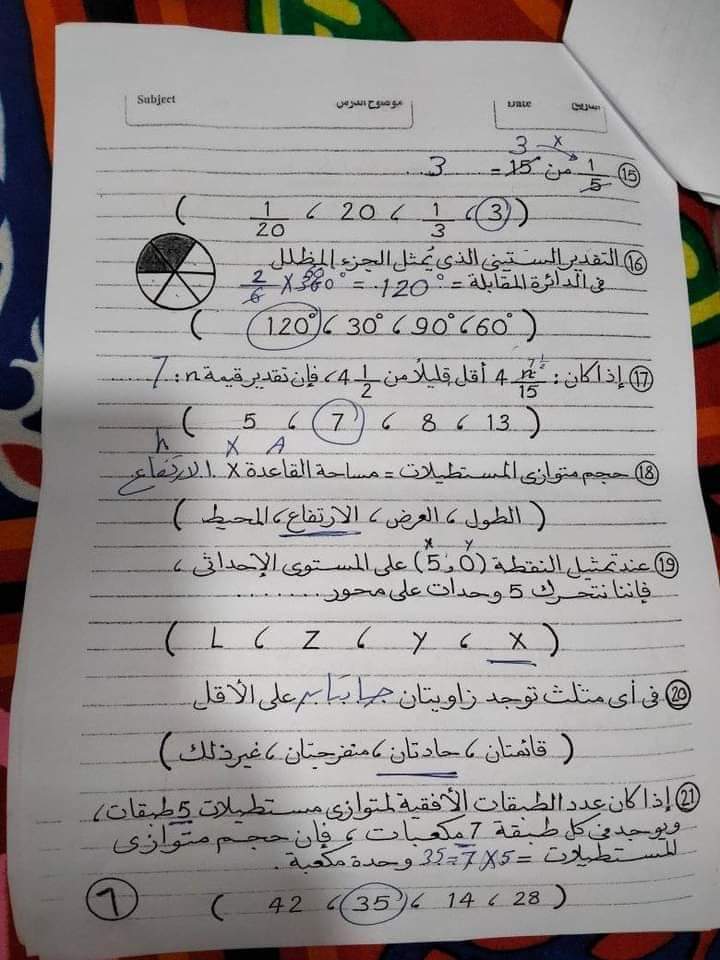 Subject موضوع الدرس Date التاريخ
3 x
⑮ 1/5 من 15 = 3 ....
( 3 ، 1/3 ، 20 ، 1/20 )
⑯ التقدير الستيني الذي يُمثل الجزء المظلل
في الدائرة المقابلة = 120° = 360° × 2/6
60
( 60° ، 90° ، 30° ، 120° )
⑰ إذا كان : 4 n/15 أقل قليلًا من 4 1/2 ، فإن تقدير قيمة n : 7 ....
7 1/2
( 13 ، 8 ، 7 ، 5 )
h X A
⑱ حجم متوازى المستطيلات = مساحة القاعدة X الارتفاع
( الطول ، العرض ، الارتفاع ، المحيط )
x y
⑲ عند تمثيل النقطة (5 , 0) على المستوى الإحداثى ،
فإننا نتحرك 5 وحدات على محور ........
( X ، y ، Z ، L )
⑳ فى أى مثلث توجد زاويتان على الأقل
( قائمتان ، حادتان ، منفرجتان ، غير ذلك )
㉑ إذا كان عدد الطبقات الأفقية لمتوازى مستطيلات 5 طبقات ،
ويوجد في كل طبقة 7 مكعبات ، فإن حجم متوازى
المستطيلات = 5 X 7 = 35 وحدة مكعبة .
( 28 ، 14 ، 35 ، 42 )